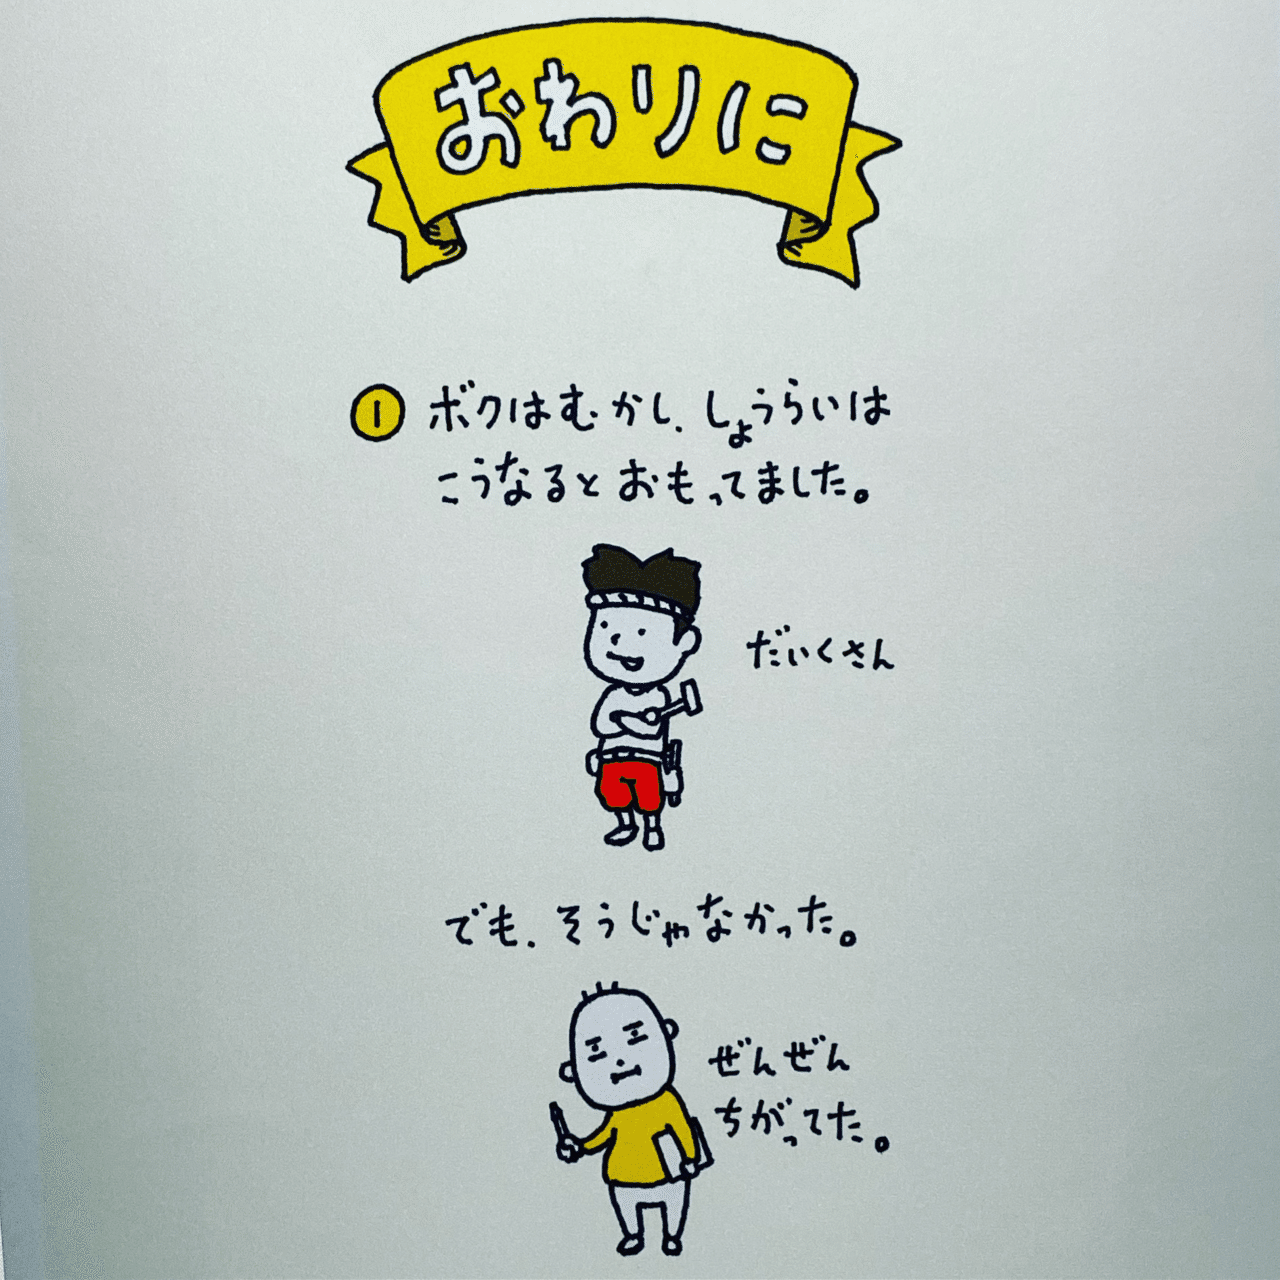 おわりに
① ボクはむかし、しょうらいは
こうなるとおもってました。
だいくさん
でも、そうじゃなかった。
ぜんぜん
ちがってた。